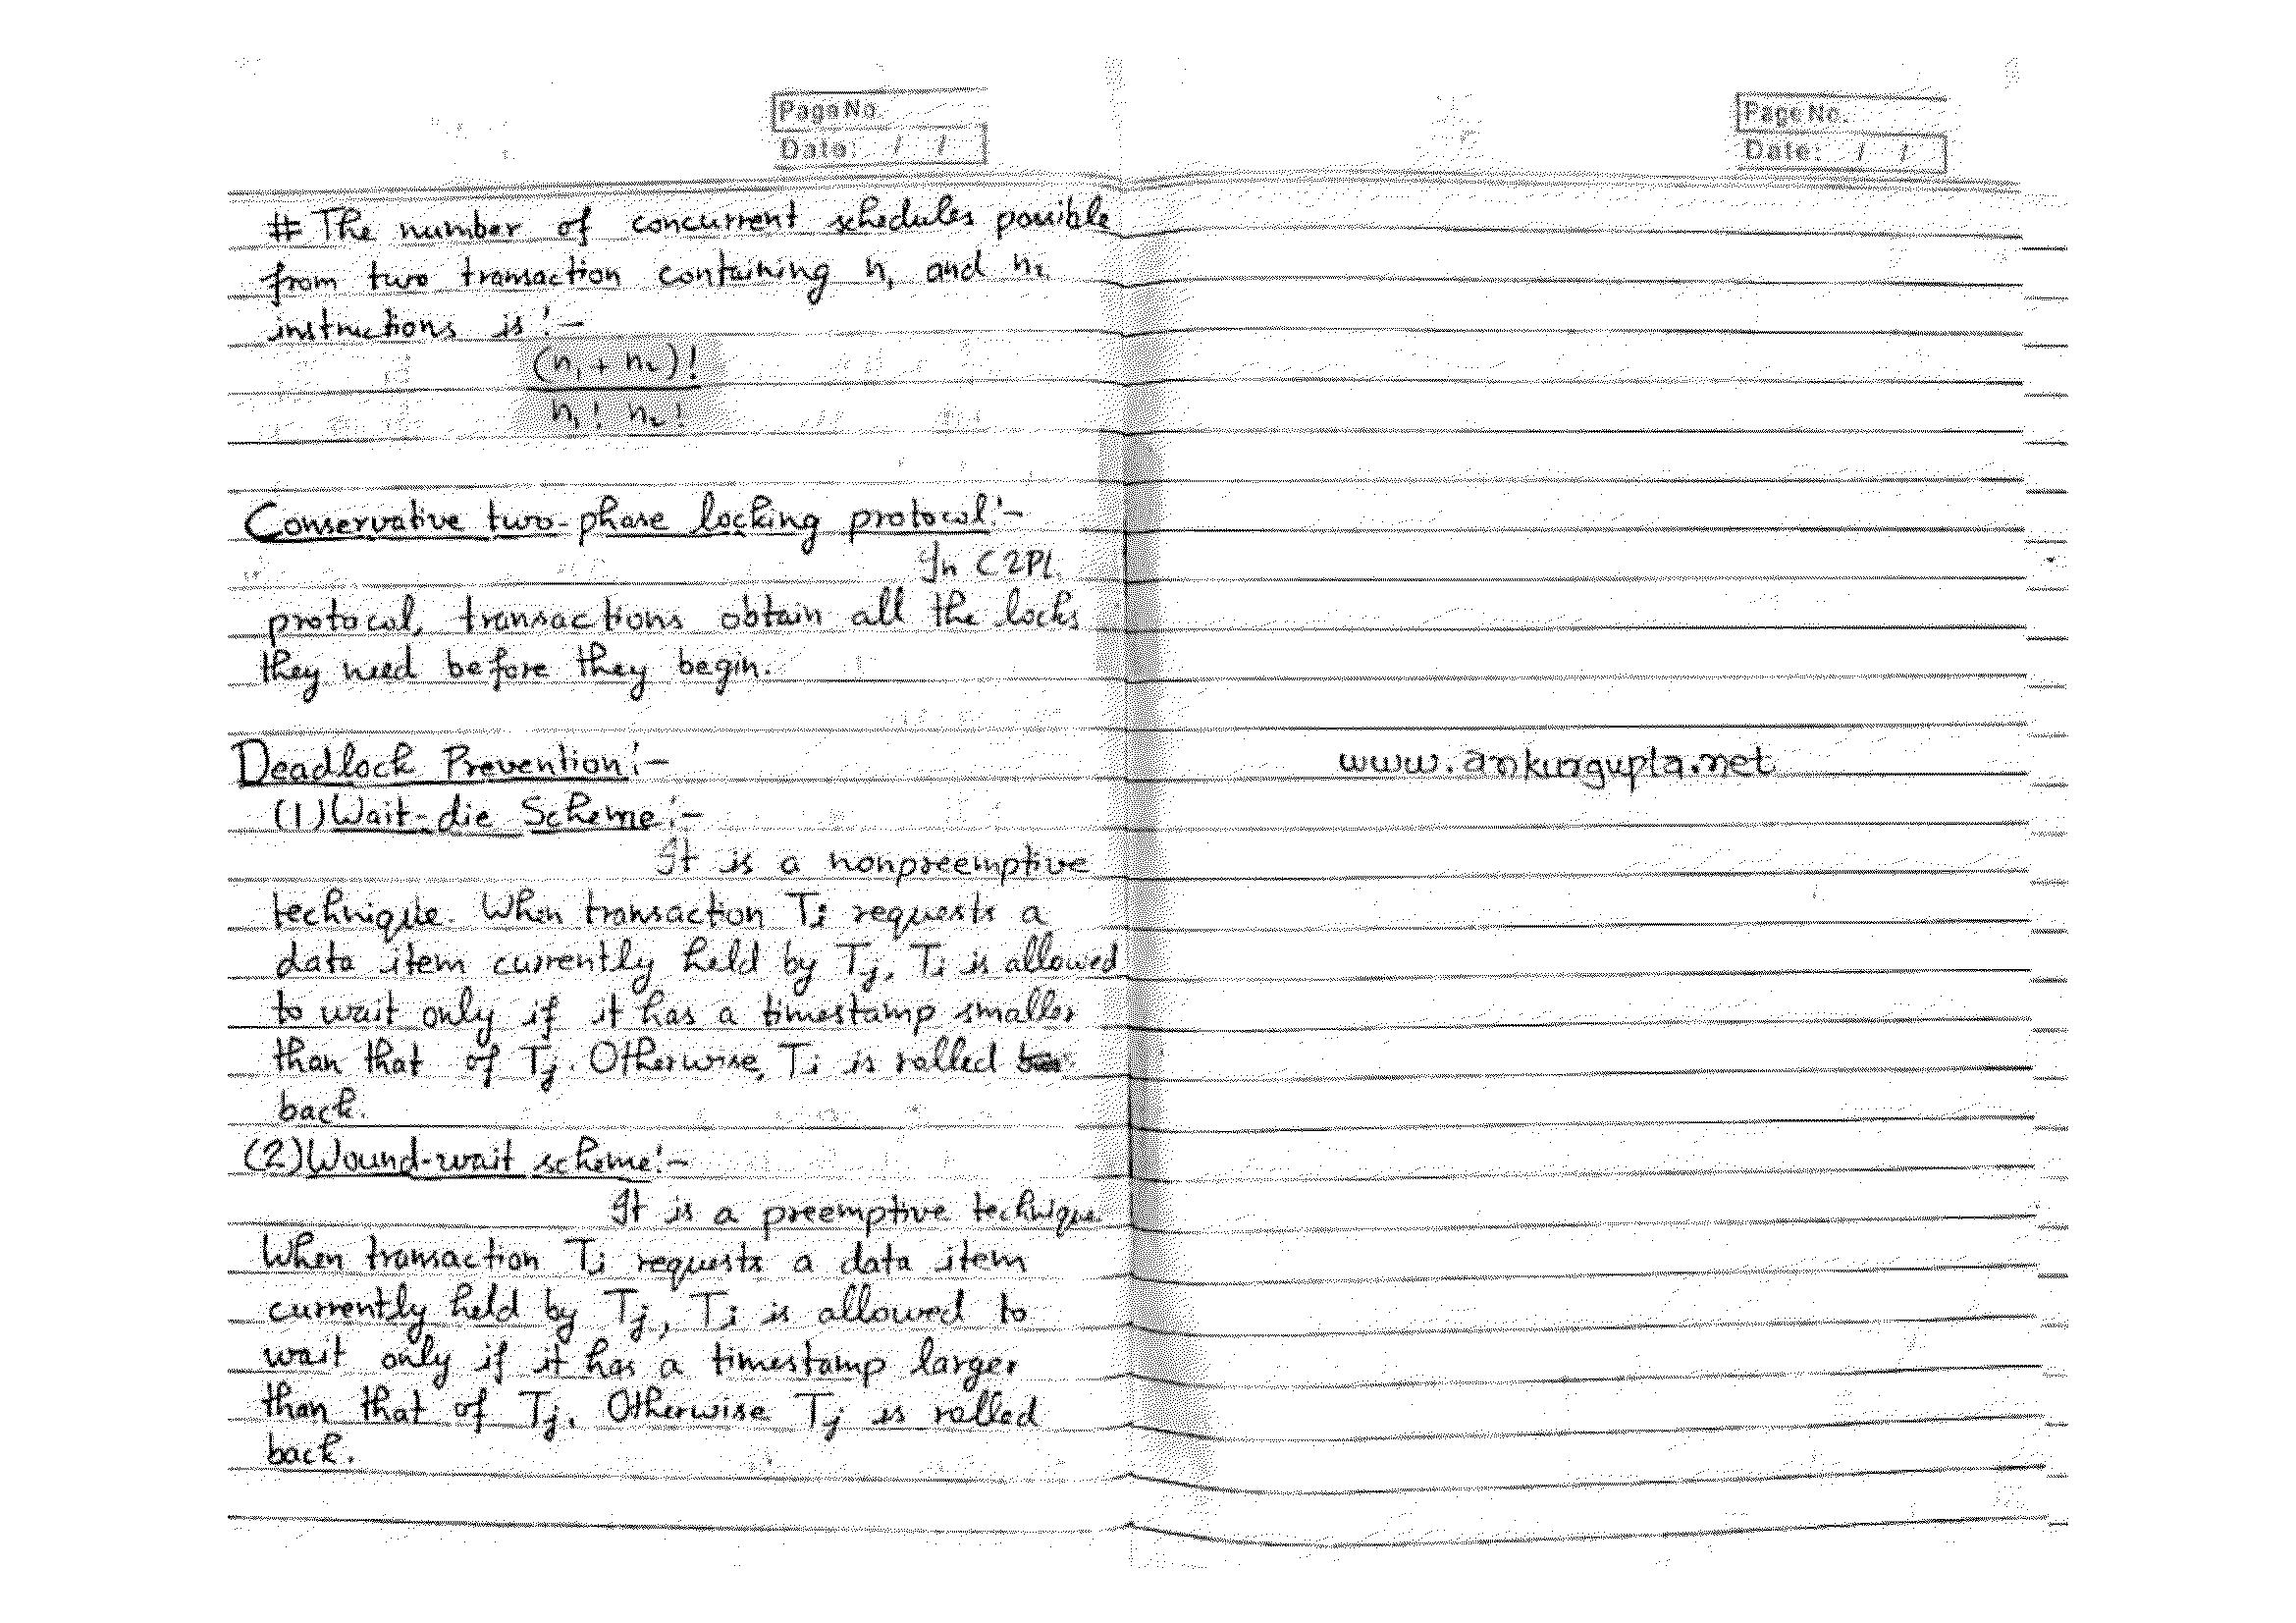 Page No.
Date: / /
# The number of concurrent schedules possible
from two transaction containing n₁ and n₂
instructions is :-
(n₁ + n₂)!
n₁! n₂!
Conservative two-phase locking protocol :-
In C2PL
protocol, transactions obtain all the locks
they need before they begin.
Deadlock Prevention :-
(1) Wait-die Scheme :-
It is a nonpreemptive
technique. When transaction Ti requests a
data item currently held by Tj, Ti is allowed
to wait only if it has a timestamp smaller
than that of Tj. Otherwise, Ti is rolled
back.
(2) Wound-wait scheme :-
It is a preemptive technique.
When transaction Ti requests a data item
currently held by Tj, Ti is allowed to
wait only if it has a timestamp larger
than that of Tj. Otherwise Tj is rolled
back.
Page No.
Date: / /
www.ankurgupta.net